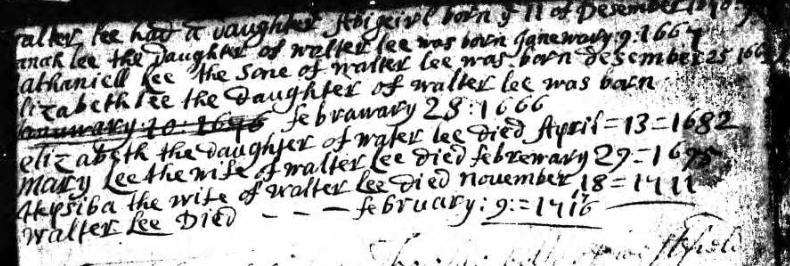 alter lee had a daughter Abigeirl born ye 11 of Desember
anah lee the Daughter of walter lee was born Janewary 9: 1667
athaniell lee the Sone of walter lee was born desember 25 166
lizabeth lee the daughter of walter lee was born
febrawary 28: 1666
elizabeth the daughter of walter lee died April = 13 = 1682
Mary Lee the wife of walter Lee died febrewary 29 = 1695
Hepsiba the wife of walter Lee died november 18 = 1711
Walter Lee Died - - - february: 9: = 1716